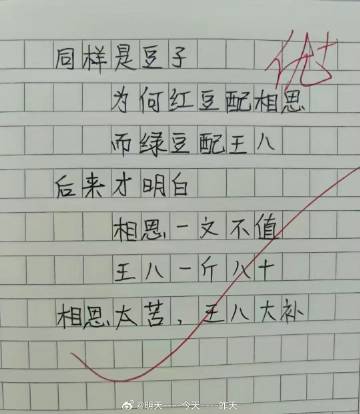 同样是豆子
优+
为何红豆配相思
而绿豆配王八
后来才明白
相思一文不值
王八一斤八十
相思太苦，王八大补
@明天——今天——昨天